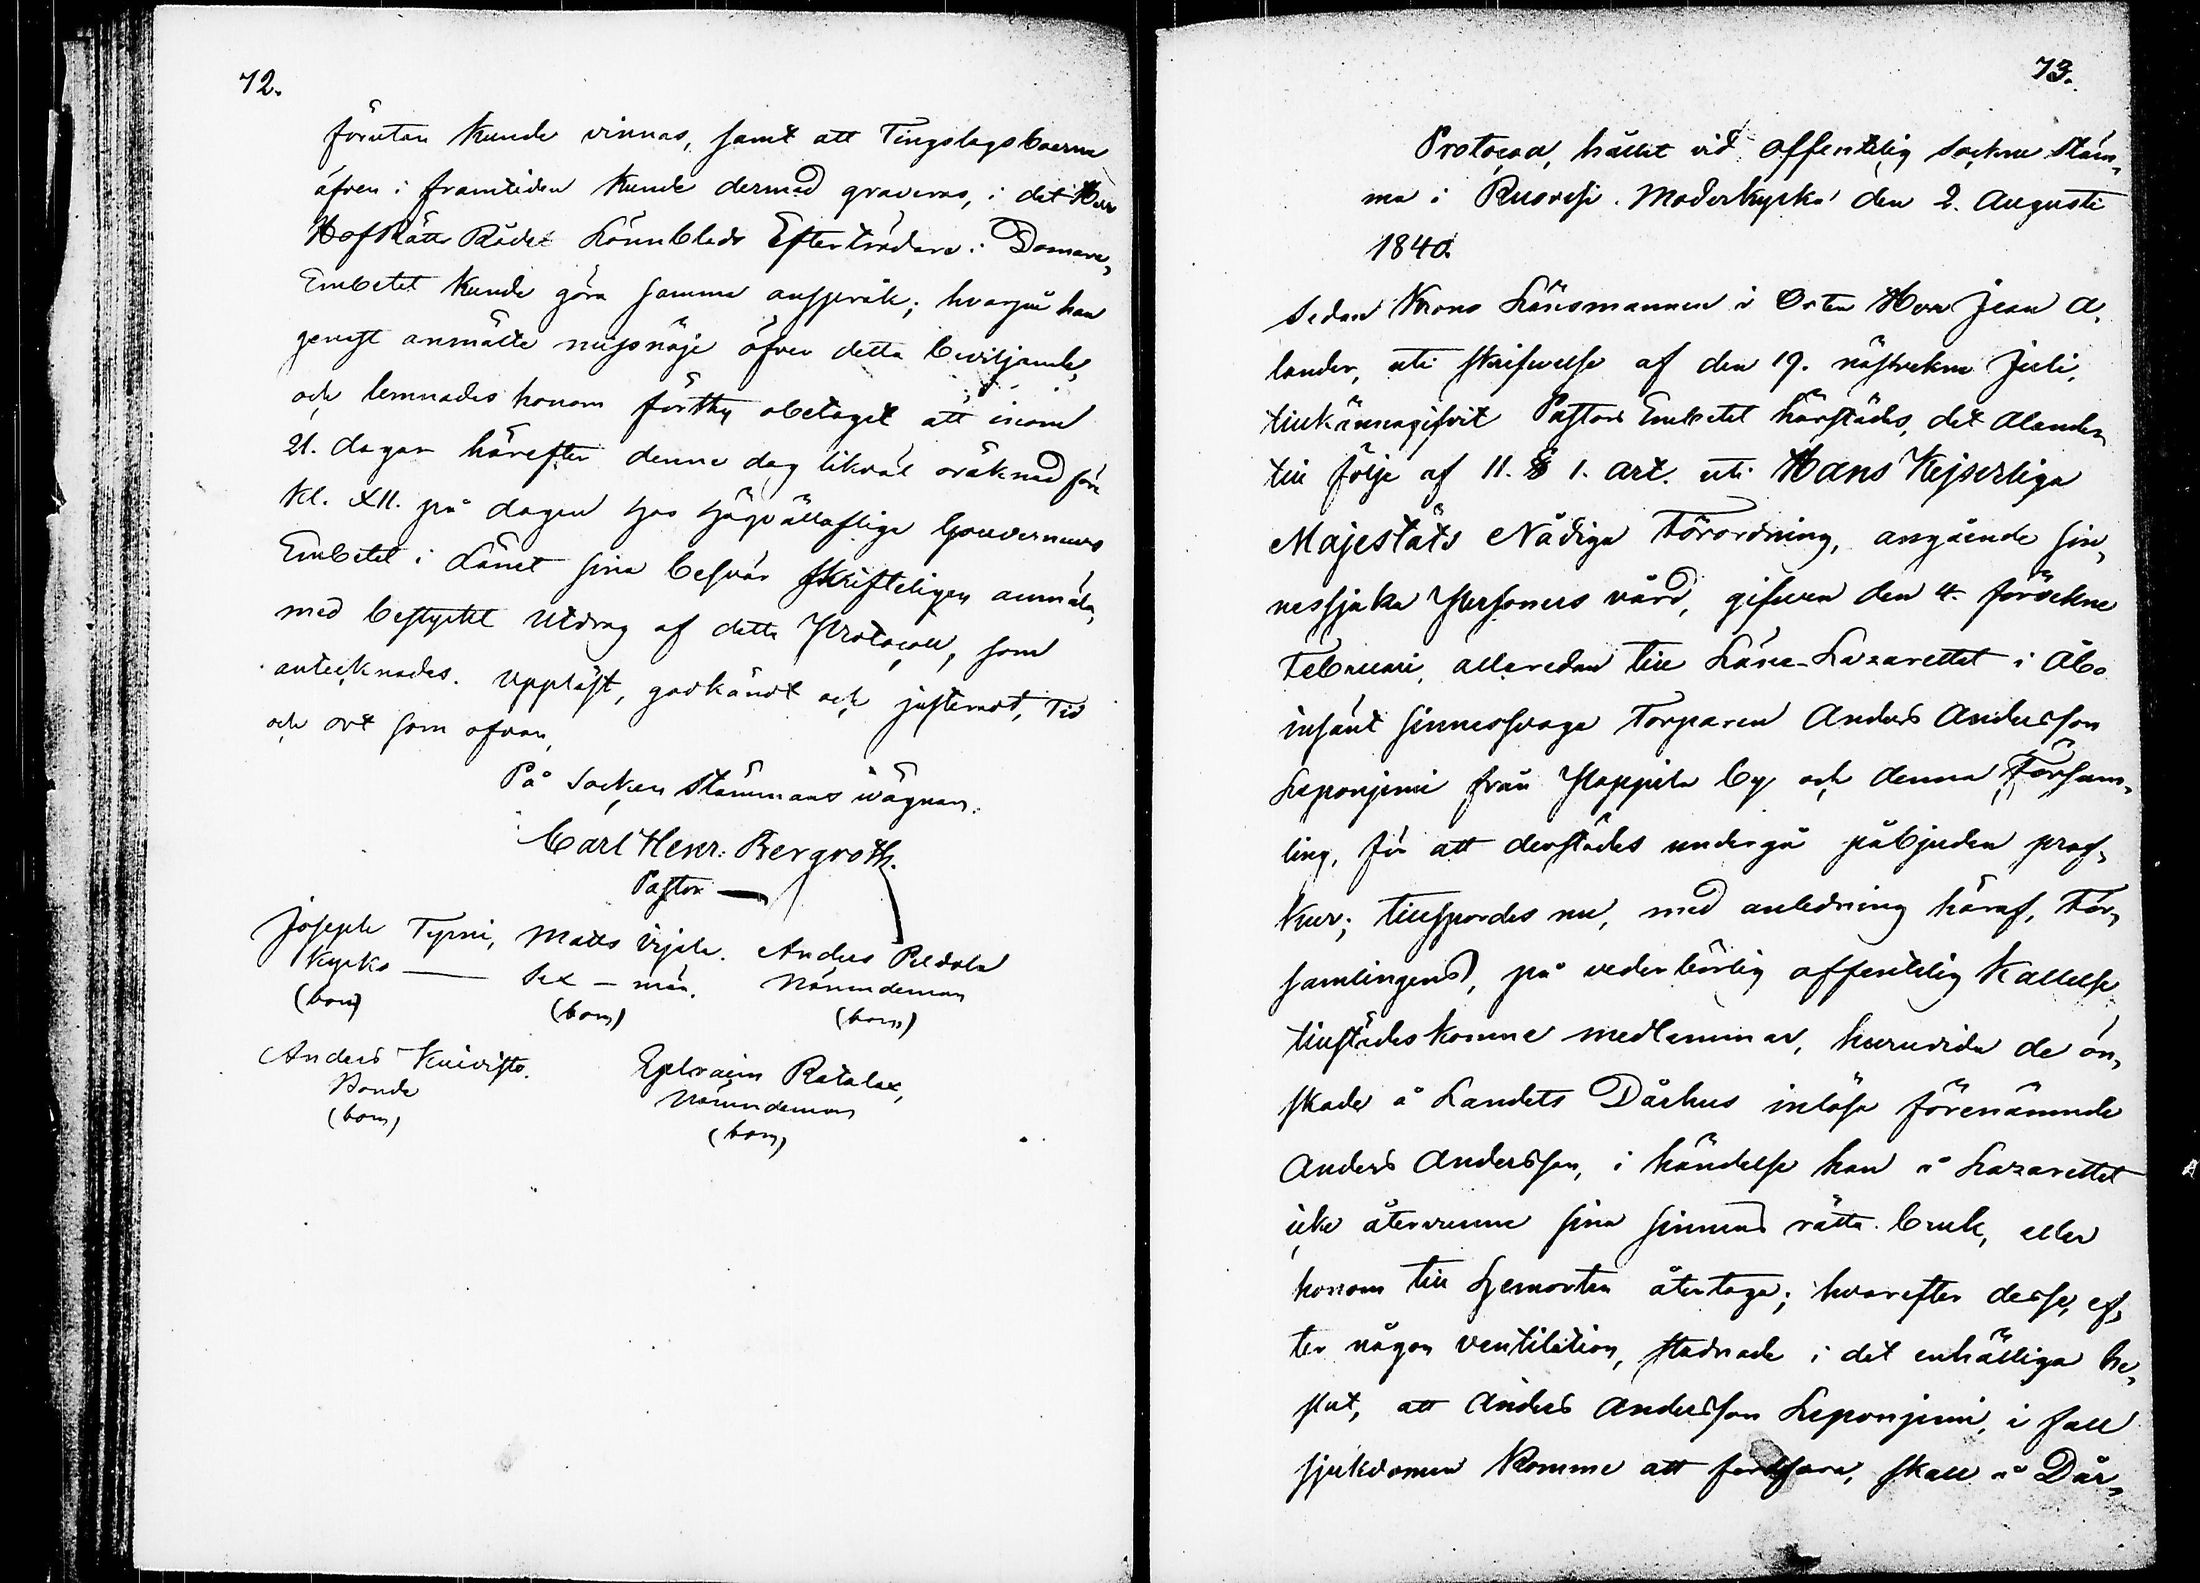 72.
förutan kunde vinnas, samt att Tingslagsboerne
äfven i framtiden kunde dermed graveras, i det Herr
HofRätts Rådet Lönnblads Efterträdare i Domare,
Embetet kunde göra samma anspråk; hvarpå han
genast anmälte missnöje öfver detta beviljande,
och lemnades honom förthy obetaget att inom
21. dagar härefter denne dag likväl oräknad före
Kl. XII. på dagen hos Högvällofliga Gouverneurs
Embetet i Länet sina besvär skrifteligen anmäla,
med bestyrkt Utdrag af detta Protocoll, som
antecknades. Uppläst, godkändt och justeradt, Tid
och ort som ofvan,
På Socken Stämmans vägnar:
Carl Henr: Bergroth.
Pastor
Joseph Tyrni, Matts Irjala. Anders Peldola
Kyrko — Sex-män. Nämndeman
(bom) (bom) (bom)
Anders Kuivisto. Ephraim Ratala,
Bonde Nämndeman
(bom) (bom)
73.
Protocoll, hållit vid offentelig Sockne Stäm,
ma i Ruovesi Moderkyrka den 2. Augusti
1840.
Sedan Krono Länsmannen i Orten Herr Jean A,
lander, uti skrifwelse af den 19. nästvekne Juli,
tillkännagifvit Pastors Embetet härstädes, det Alander
till följe af 11. § 1. art. uti Hans Kejserliga
Majestäts Nådiga Förordning, angående sin,
nessjuka Personers vård, gifwen den 4. förvekne
Februari, allaredan till Läns-Lazarettet i Åbo
insänt sinnessvaga Torparen Anders Andersson
Leponjemi från Pappila by och denna Försam,
ling, för att derstädes undergå påbjuden prof,
kur; tillspordes nu, med anledning häraf, För,
samlingens, på vederbörlig offentelig Kallelse
tillstädeskomne medlemmar, huruvida de ön,
skade å Landets Dårhus inlösa förenämnde
Anders Andersson, i händelse han å Lazarettet
icke återvunne sina sinnens rätta bruk, eller
honom till hemorten återtaga; hvarefter desse, ef,
ter någon ventilation, stadnade i det enhälliga be,
slut, att Anders Andersson Leponjemi, i fall
sjukdomen komme att fortfara, skall å Dår,